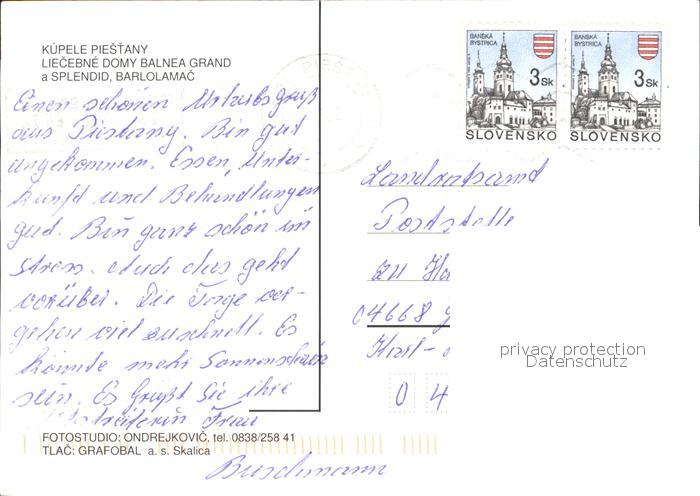 KÚPELE PIEŠŤANY
LIEČEBNÉ DOMY BALNEA GRAND
a SPLENDID, BARLOLAMAČ
Einen schönen Urlaubsgruß
aus Piestany. Bin gut
angekommen. Essen, Unter-
kunft und Behandlungen
gut. Bin ganz schön im
Stress. Auch das geht
vorüber. Die Tage ver-
gehen viel zu schnell. Es
könnte mehr Sonnenschein
sein. Es grüßt Sie ihre
Frau
Buschmann
FOTOSTUDIO: ONDREJKOVIČ, tel. 0838/258 41
TLAČ: GRAFOBAL a. s. Skalica
BANSKÁ
BYSTRICA
3 Sk
SLOVENSKO
BANSKÁ
BYSTRICA
3 Sk
SLOVENSKO
Landratsamt
Poststelle
zu
04668
Karl-
0 4
privacy protection
Datenschutz